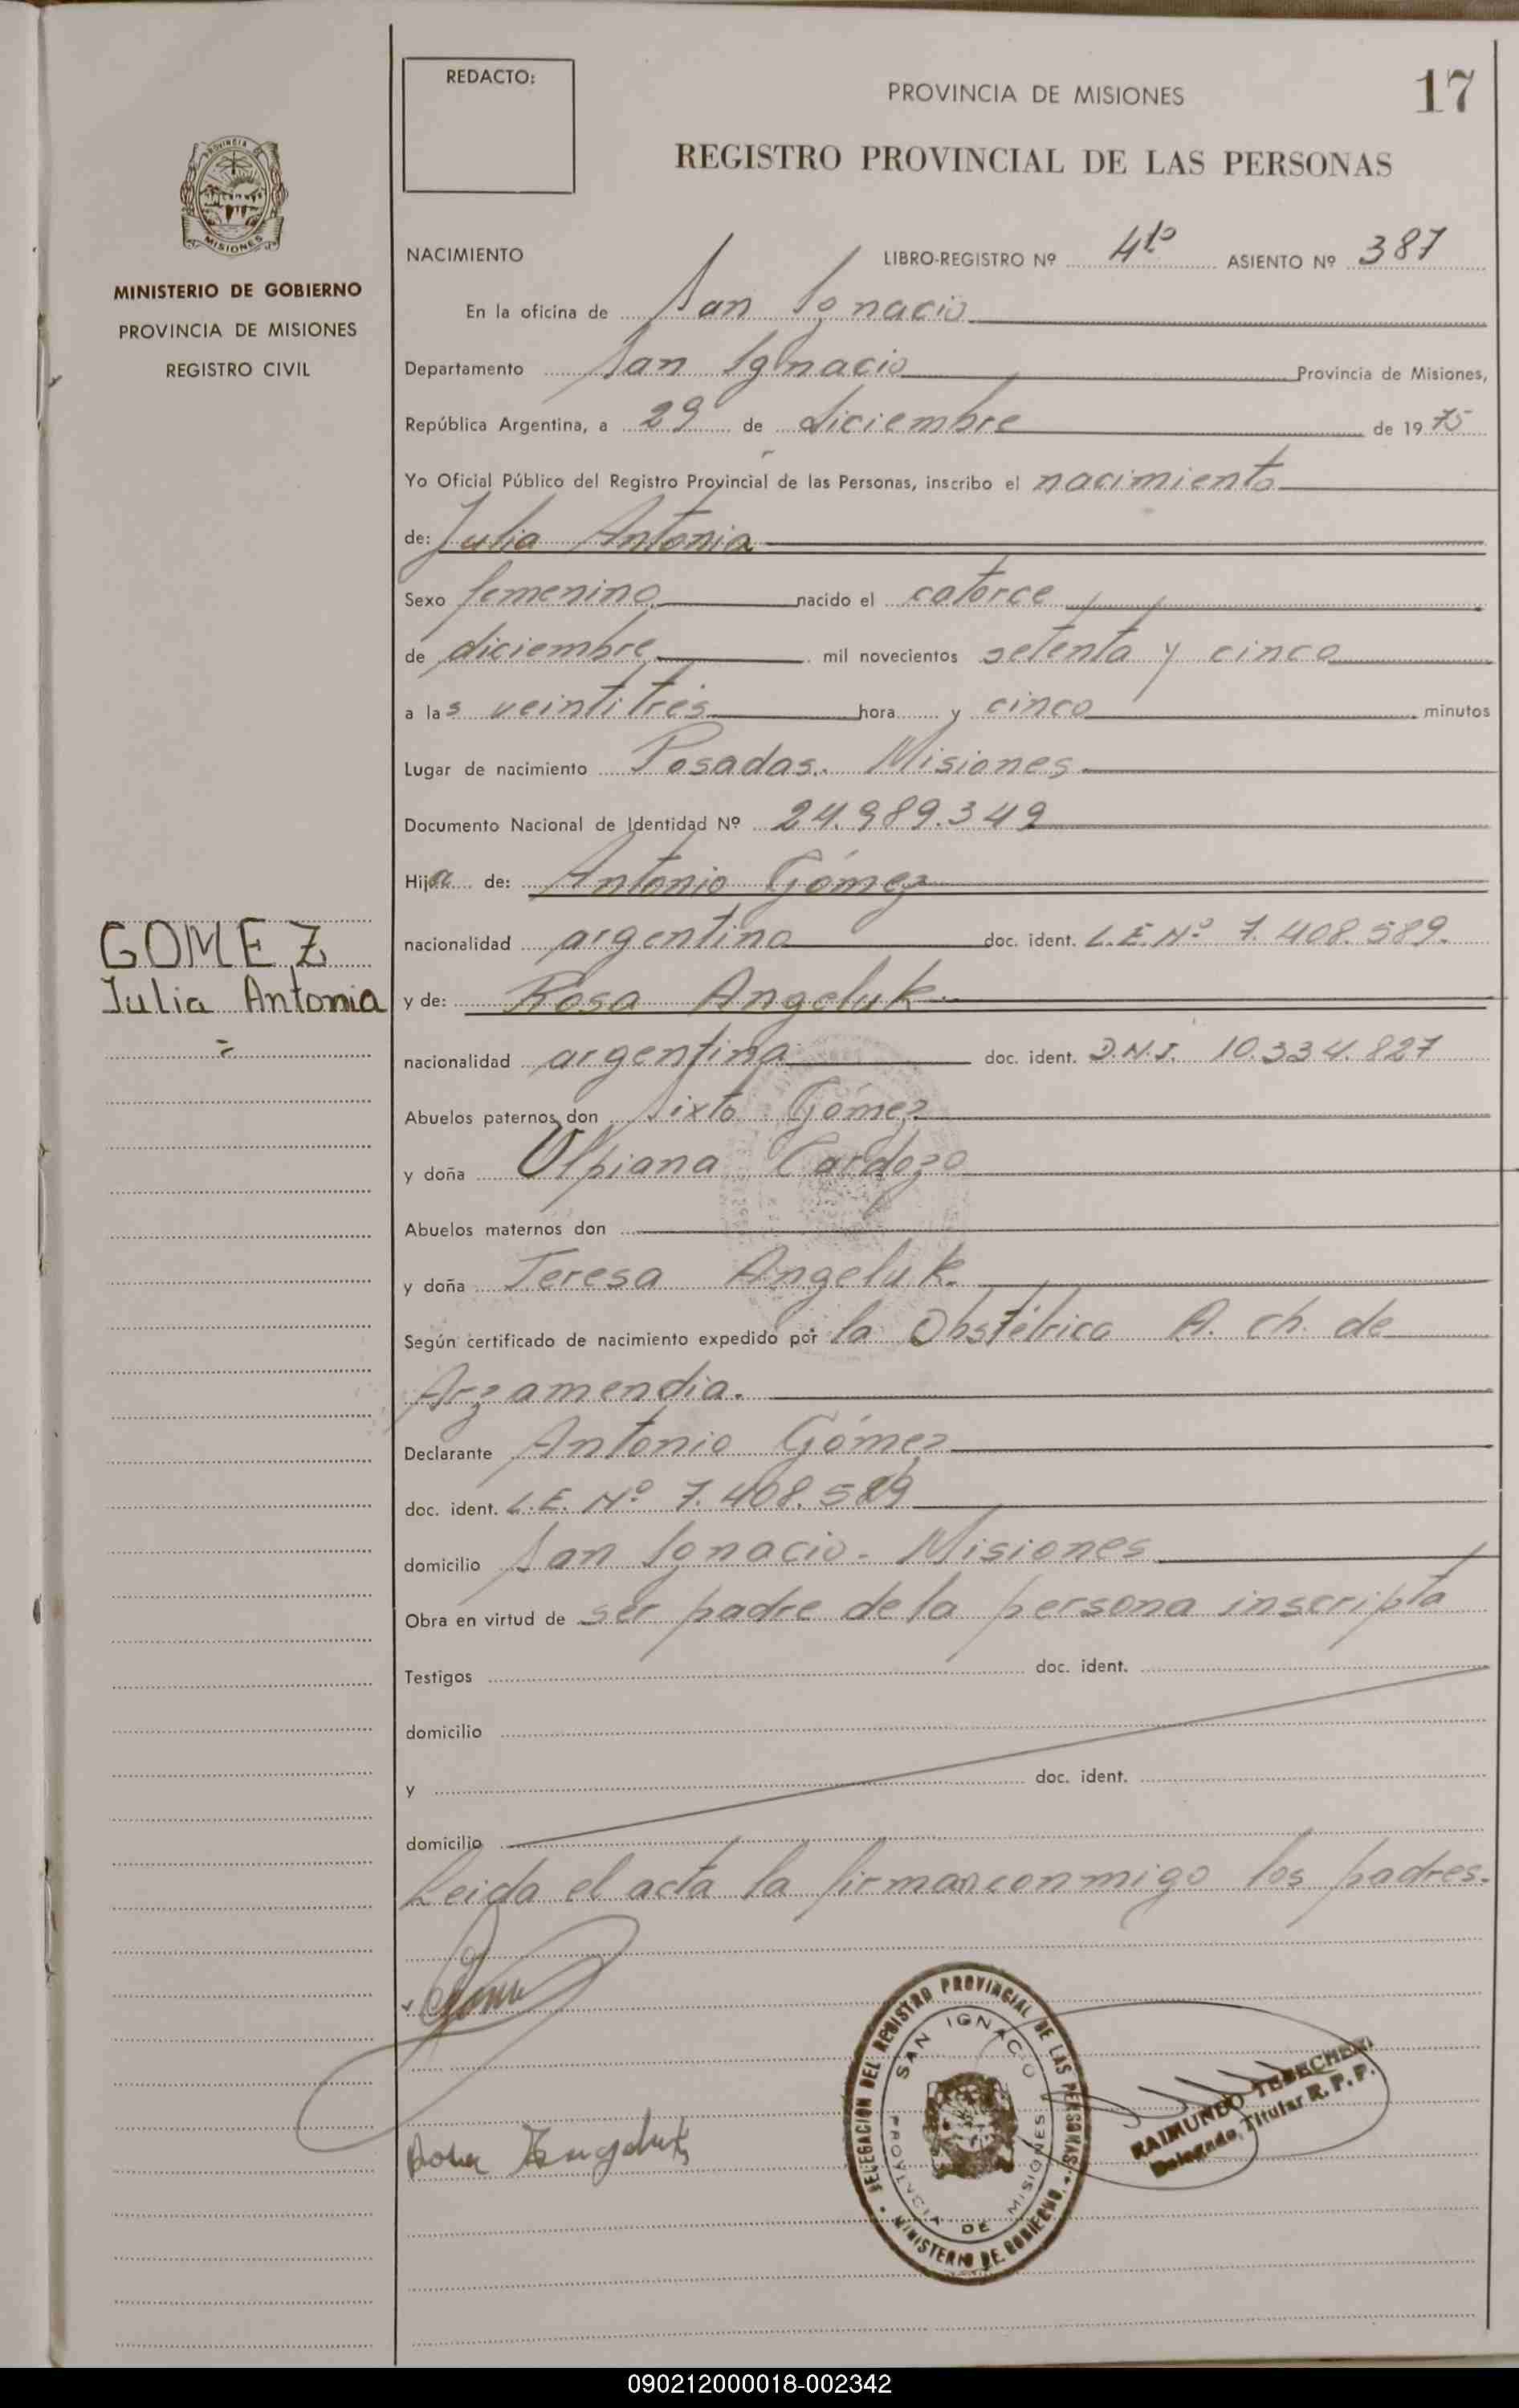 REDACTO:
PROVINCIA DE MISIONES
17
REGISTRO PROVINCIAL DE LAS PERSONAS
PROVINCIA DE
MISIONES
MINISTERIO DE GOBIERNO
PROVINCIA DE MISIONES
REGISTRO CIVIL
NACIMIENTO LIBRO-REGISTRO Nº 4to ASIENTO Nº 387
En la oficina de San Ignacio
Departamento San Ignacio Provincia de Misiones,
República Argentina, a 29 de diciembre de 1975
Yo Oficial Público del Registro Provincial de las Personas, inscribo el nacimiento
de: Julia Antonia
Sexo femenino nacido el catorce
de diciembre mil novecientos setenta y cinco
a las veintitrés hora y cinco minutos
Lugar de nacimiento Posadas. Misiones
Documento Nacional de Identidad Nº 24.989.349
Hija de: Antonio Gómez
nacionalidad argentino doc. ident. L.E. Nº 7.408.589.
y de: Rosa Angeluk
nacionalidad argentina doc. ident. D.N.I. 10.334.827
GOMEZ
Julia Antonia
Abuelos paternos don Sixto Gómez
y doña Ulpiana Cardozo
Abuelos maternos don
y doña Teresa Angeluk.
Según certificado de nacimiento expedido por la Obstétrica A. ch. de
Arzamendia.
Declarante Antonio Gómez
doc. ident. L.E. Nº 7.408.589
domicilio San Ignacio. Misiones
Obra en virtud de ser padre de la persona inscripta
Testigos doc. ident.
domicilio
y doc. ident.
domicilio
Leida el acta la firman conmigo los padres.
Rosa Angeluk
DELEGACION DEL REGISTRO PROVINCIAL DE LAS PERSONAS
SAN IGNACIO
PROVINCIA DE MISIONES
MINISTERIO DE GOBIERNO
RAIMUNDO
Delegado Titular R. P. P.
090212000018-002342